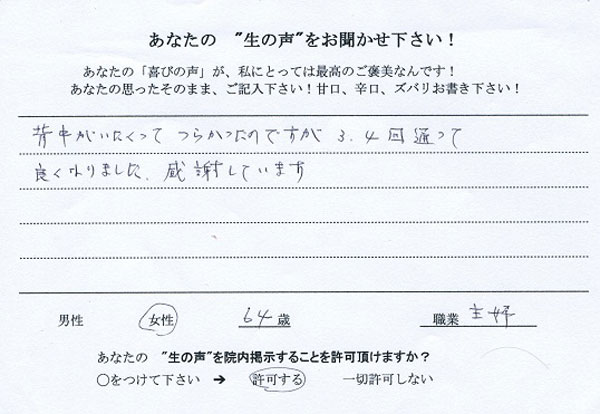 あなたの　"生の声"をお聞かせ下さい！
あなたの「喜びの声」が、私にとっては最高のご褒美なんです！
あなたの思ったそのまま、ご記入下さい！甘口、辛口、ズバリお書き下さい！
背中がいたくって つらかったのですが 3.4回通って
良くなりました、感謝しています
男性　女性　64歳　職業 主婦
あなたの　"生の声"を院内掲示することを許可頂けますか？
〇をつけて下さい ➔ 許可する　一切許可しない